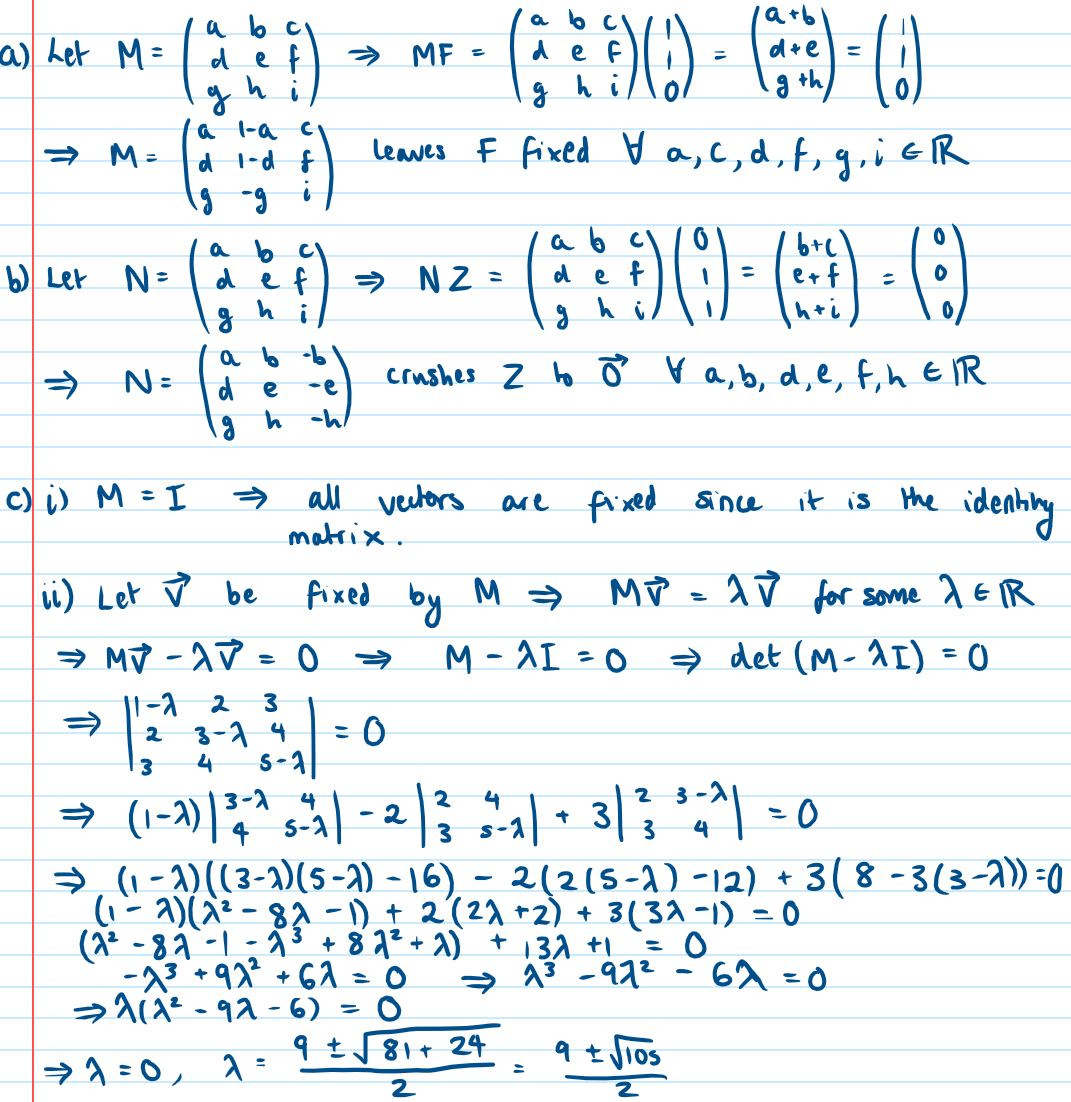 a) Let M = ( a b c ; d e f ; g h i ) ⇒ MF = ( a b c ; d e f ; g h i ) ( 1 ; 1 ; 0 ) = ( a+b ; d+e ; g+h ) = ( 1 ; 1 ; 0 )
⇒ M = ( a 1-a c ; d 1-d f ; g -g i ) leaves F fixed ∀ a, c, d, f, g, i ∈ ℝ
b) Let N = ( a b c ; d e f ; g h i ) ⇒ NZ = ( a b c ; d e f ; g h i ) ( 0 ; 1 ; 1 ) = ( b+c ; e+f ; h+i ) = ( 0 ; 0 ; 0 )
⇒ N = ( a b -b ; d e -e ; g h -h ) crushes Z to 0⃗ ∀ a, b, d, e, f, h ∈ ℝ
c) i) M = I ⇒ all vectors are fixed since it is the identity
matrix.
ii) Let V⃗ be fixed by M ⇒ MV⃗ = λV⃗ for some λ ∈ ℝ
⇒ MV⃗ - λV⃗ = 0 ⇒ M - λI = 0 ⇒ det (M - λI) = 0
⇒ | 1-λ 2 3 ; 2 3-λ 4 ; 3 4 5-λ | = 0
⇒ (1-λ) | 3-λ 4 ; 4 5-λ | - 2 | 2 4 ; 3 5-λ | + 3 | 2 3-λ ; 3 4 | = 0
⇒ (1-λ)((3-λ)(5-λ) - 16) - 2(2(5-λ) - 12) + 3(8 - 3(3-λ)) = 0
(1-λ)(λ² - 8λ - 1) + 2(2λ+2) + 3(3λ-1) = 0
(λ² - 8λ - 1 - λ³ + 8λ² + λ) + 13λ + 1 = 0
-λ³ + 9λ² + 6λ = 0 ⇒ λ³ - 9λ² - 6λ = 0
⇒ λ(λ² - 9λ - 6) = 0
⇒ λ = 0, λ = (9 ± √(81 + 24)) / 2 = (9 ± √105) / 2